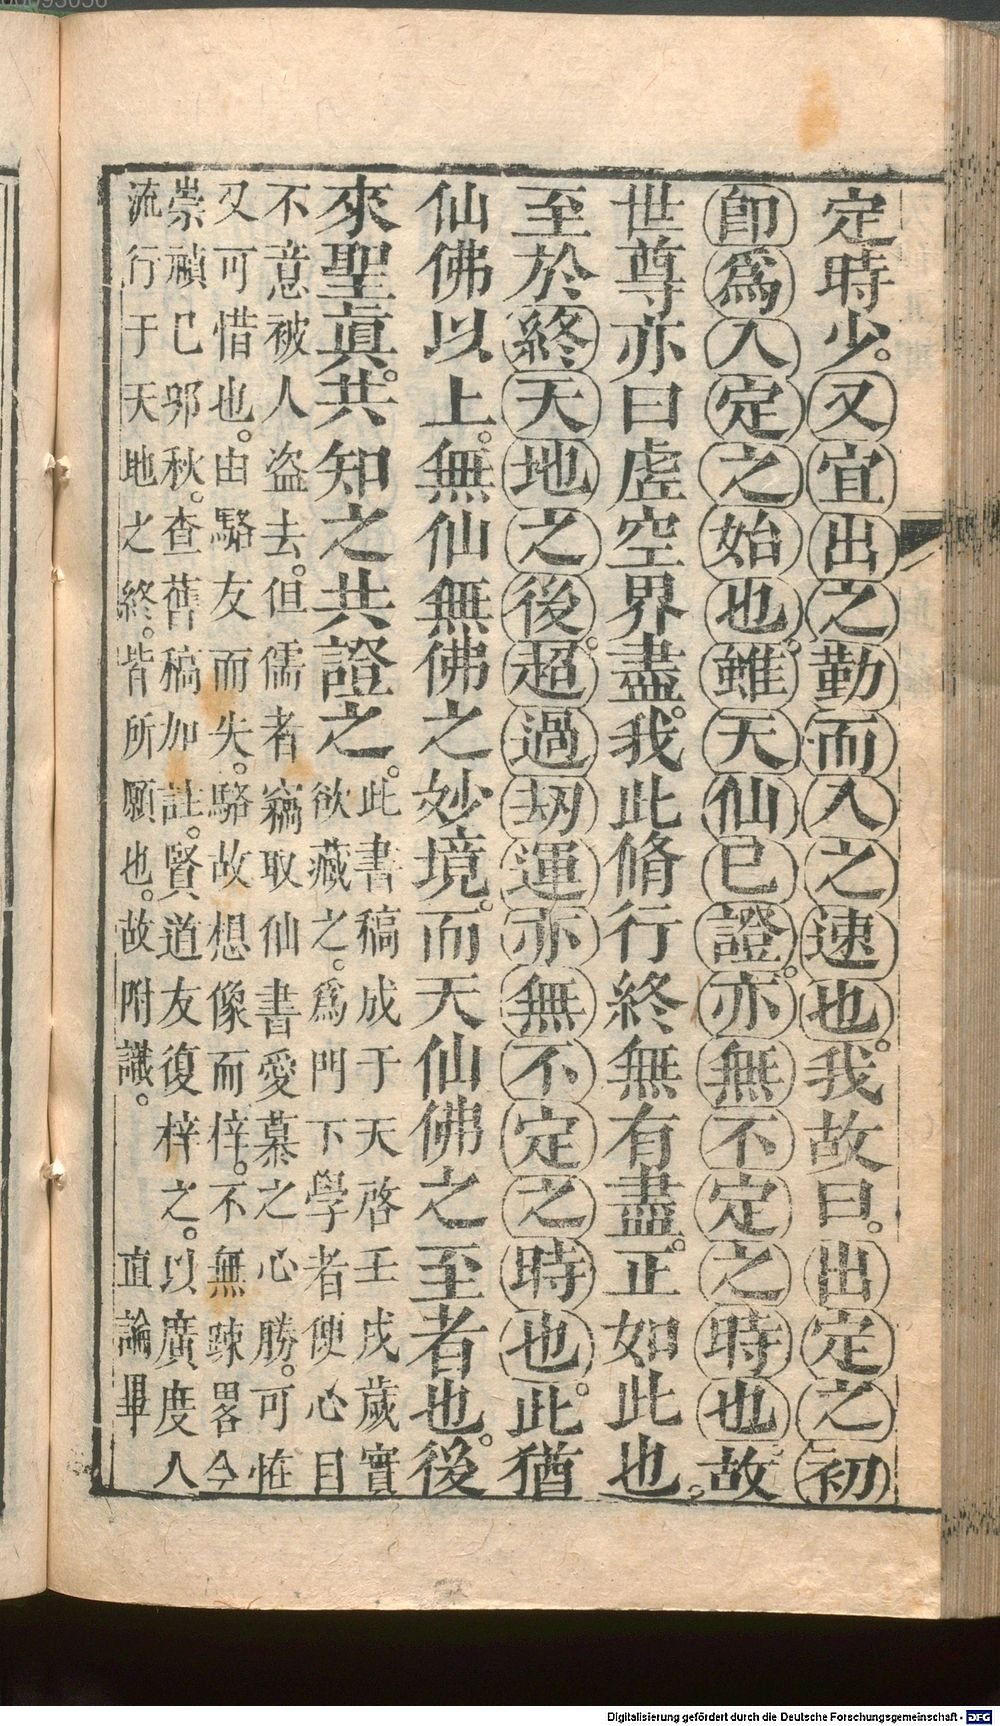 定時少。又宜出之勤而入之速也。我故曰。出定之初
卽爲入定之始也。雖天仙已證。亦無不定之時也。故
世尊亦曰虛空界盡。我此脩行終無有盡。正如此也。
至於終天地之後。超過劫運亦無不定之時也。此猶
仙佛以上。無仙無佛之妙境。而天仙佛之至者也。後
來聖眞。共知之共證之。
此書稿成于天啓壬戌歲實
欲藏之。爲門下學者便心目
不意被人盜去。但儒者竊取仙書愛慕之心勝。可怪
又可惜也。由駱友而失。駱故想像而倖。不無踈畧今
崇禎己卯秋。查舊稿加註。賢道友復梓之。以廣度人
流行于天地之終。皆所願也。故附識。 直論畢
Digitalisierung gefördert durch die Deutsche Forschungsgemeinschaft - DFG